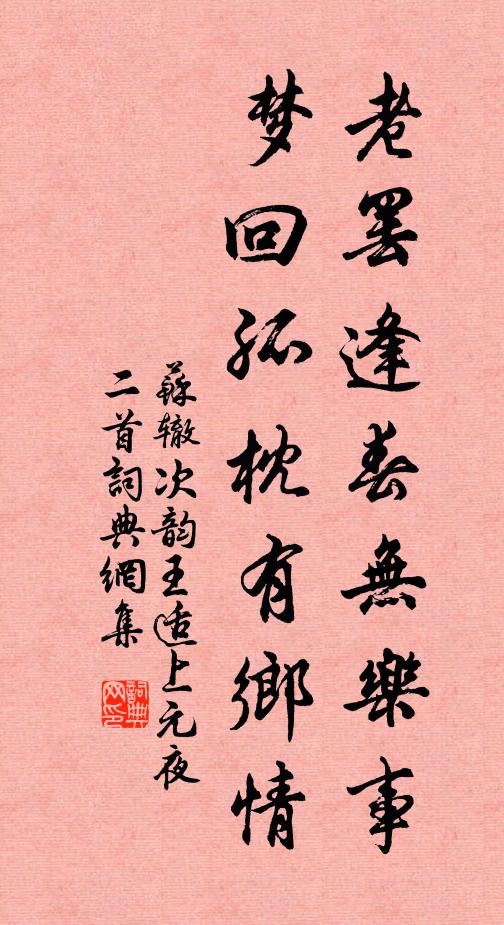 老罢逢春無樂事
梦回孤枕有鄉情
蘇辙次韵王适上元夜
二首詞典網集
詞典网印